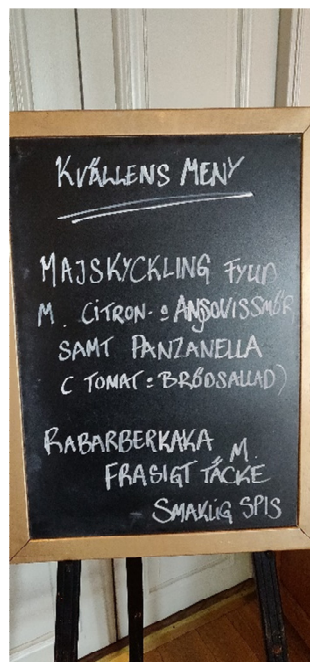 KVÄLLENS MENY
MAJSKYCKLING FYLLD
M. CITRON- & ANSJOVISSMÖR
SAMT PANZANELLA
(TOMAT & BRÖDSALLAD)
RABARBERKAKA M.
FRASIGT TÄCKE
SMAKLIG SPIS